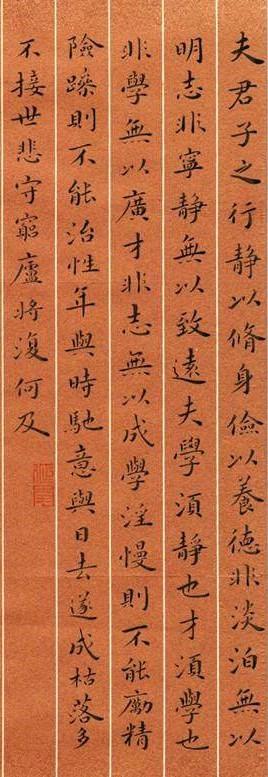 夫君子之行靜以脩身儉以養德非淡泊無以
明志非寧靜無以致遠夫學須靜也才須學也
非學無以廣才非志無以成學淫慢則不能勵精
險躁則不能治性年與時馳意與日去遂成枯落多
不接世悲守窮廬將復何及